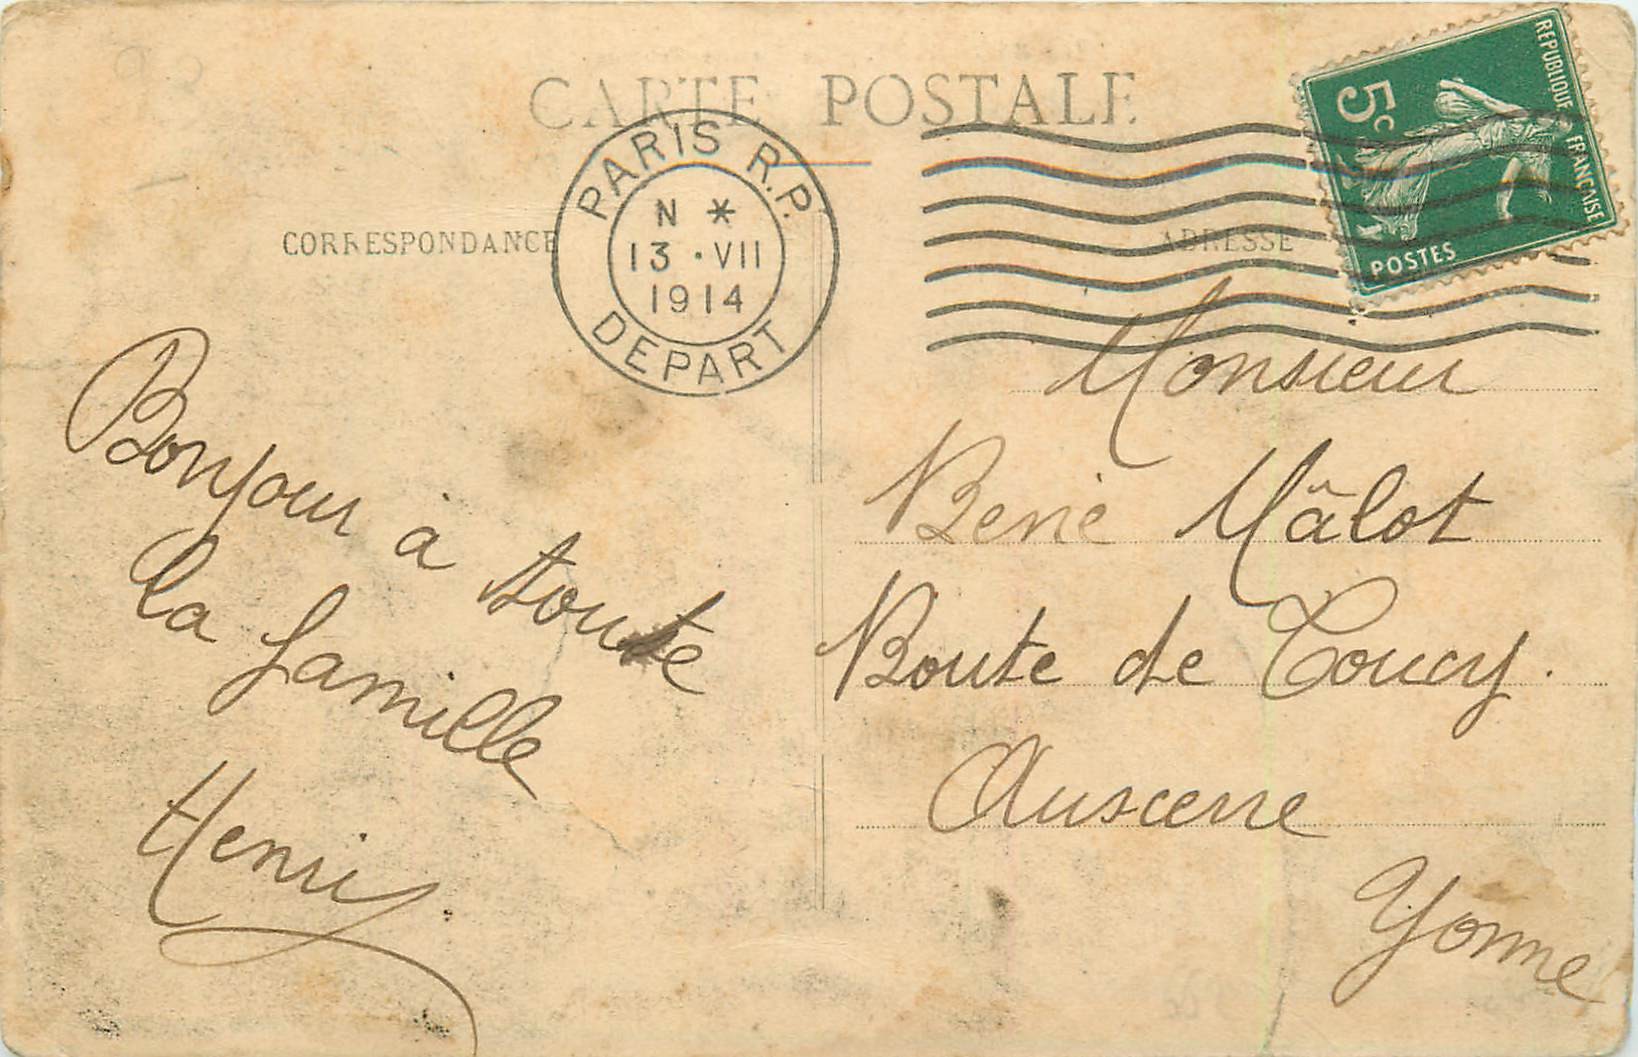 CARTE POSTALE
CORRESPONDANCE
ADRESSE
PARIS R.P.
N *
13 · VII
1914
DEPART
REPUBLIQUE FRANÇAISE
5c
POSTES
Bonjour à toute
la famille
Henri
Monsieur
René Mâlot
Route de Toucy.
Auxerre
Yonne